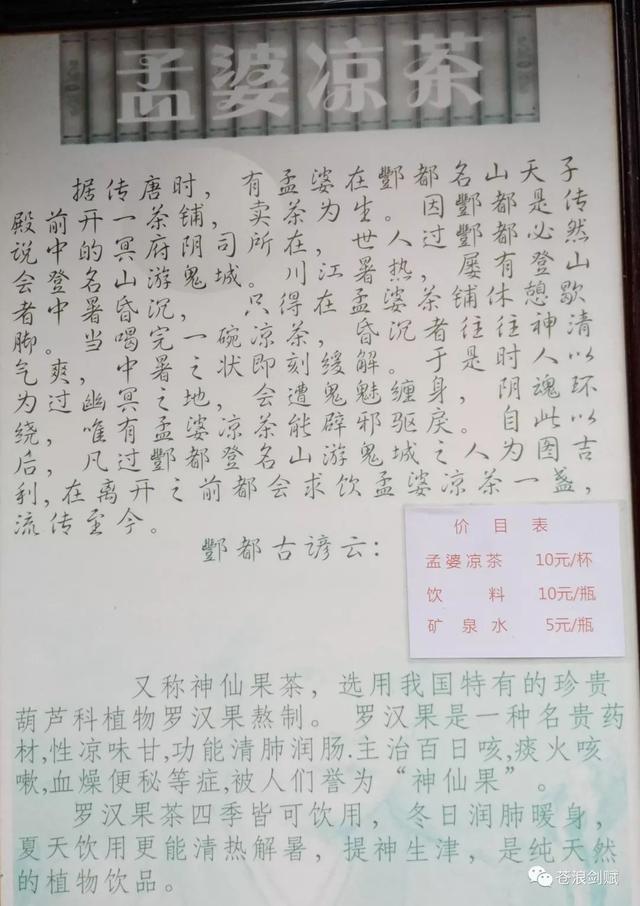 孟婆凉茶
据传唐时，有孟婆在酆都名山天子
殿前开一茶铺，卖茶为生。因酆都是传
说中的冥府阴司所在，世人过酆都必然
会登名山游鬼城。川江暑热，屡有登山
者中暑昏沉，只得在孟婆茶铺休憩歇
脚。当喝完一碗凉茶，昏沉者往往神清
气爽，中暑之状即刻缓解。于是时人以
为过幽冥之地，会遭鬼魅缠身，阴魂环
绕，唯有孟婆凉茶能辟邪驱戾。自此以
后，凡过酆都登名山游鬼城之人为图吉
利，在离开之前都会求饮孟婆凉茶一盏，
流传至今。
酆都古谚云：
价目表
孟婆凉茶 10元/杯
饮料 10元/瓶
矿泉水 5元/瓶
又称神仙果茶，选用我国特有的珍贵
葫芦科植物罗汉果熬制。罗汉果是一种名贵药
材,性凉味甘,功能清肺润肠.主治百日咳,痰火咳
嗽,血燥便秘等症,被人们誉为“神仙果”。
罗汉果茶四季皆可饮用，冬日润肺暖身，
夏天饮用更能清热解暑，提神生津，是纯天然
的植物饮品。
苍浪剑赋